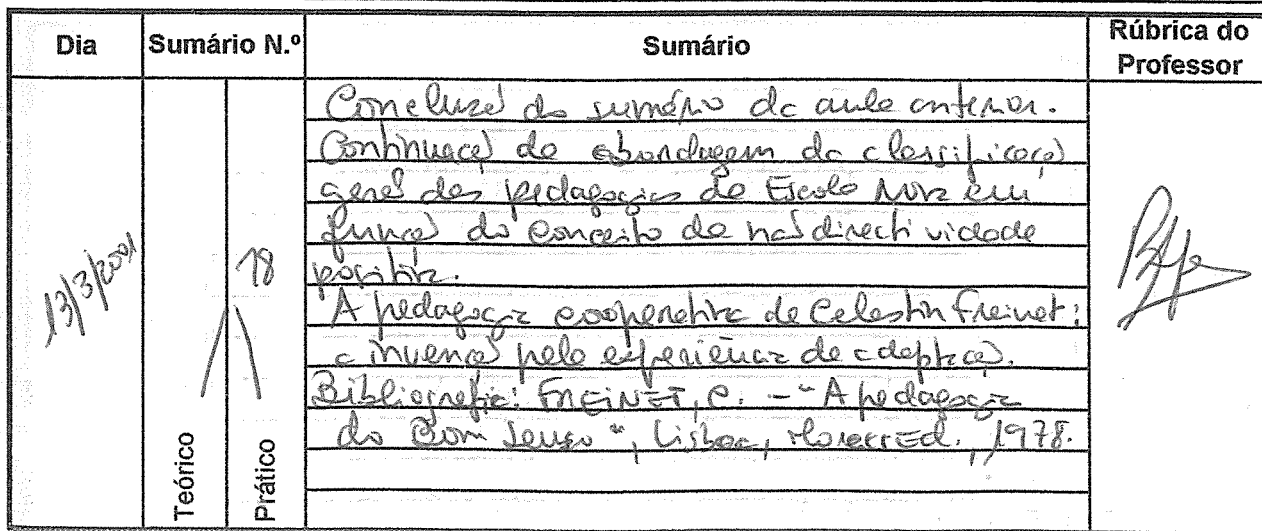 Dia
Sumário N.º
Sumário
Rúbrica do
Professor
13/3/2001
18
Teórico
Prático
Conclusão do sumário da aula anterior.
Continuação da abordagem da classificação
geral das pedagogias da Escola Nova em
função do conceito de não directividade
positiva.
A pedagogia cooperativa de Celestin Freinet:
a invenção pela experiência de adaptação.
Bibliografia: FREINET, C. - "A pedagogia
do Bom Senso", Lisboa, Moraes Ed., 1978.